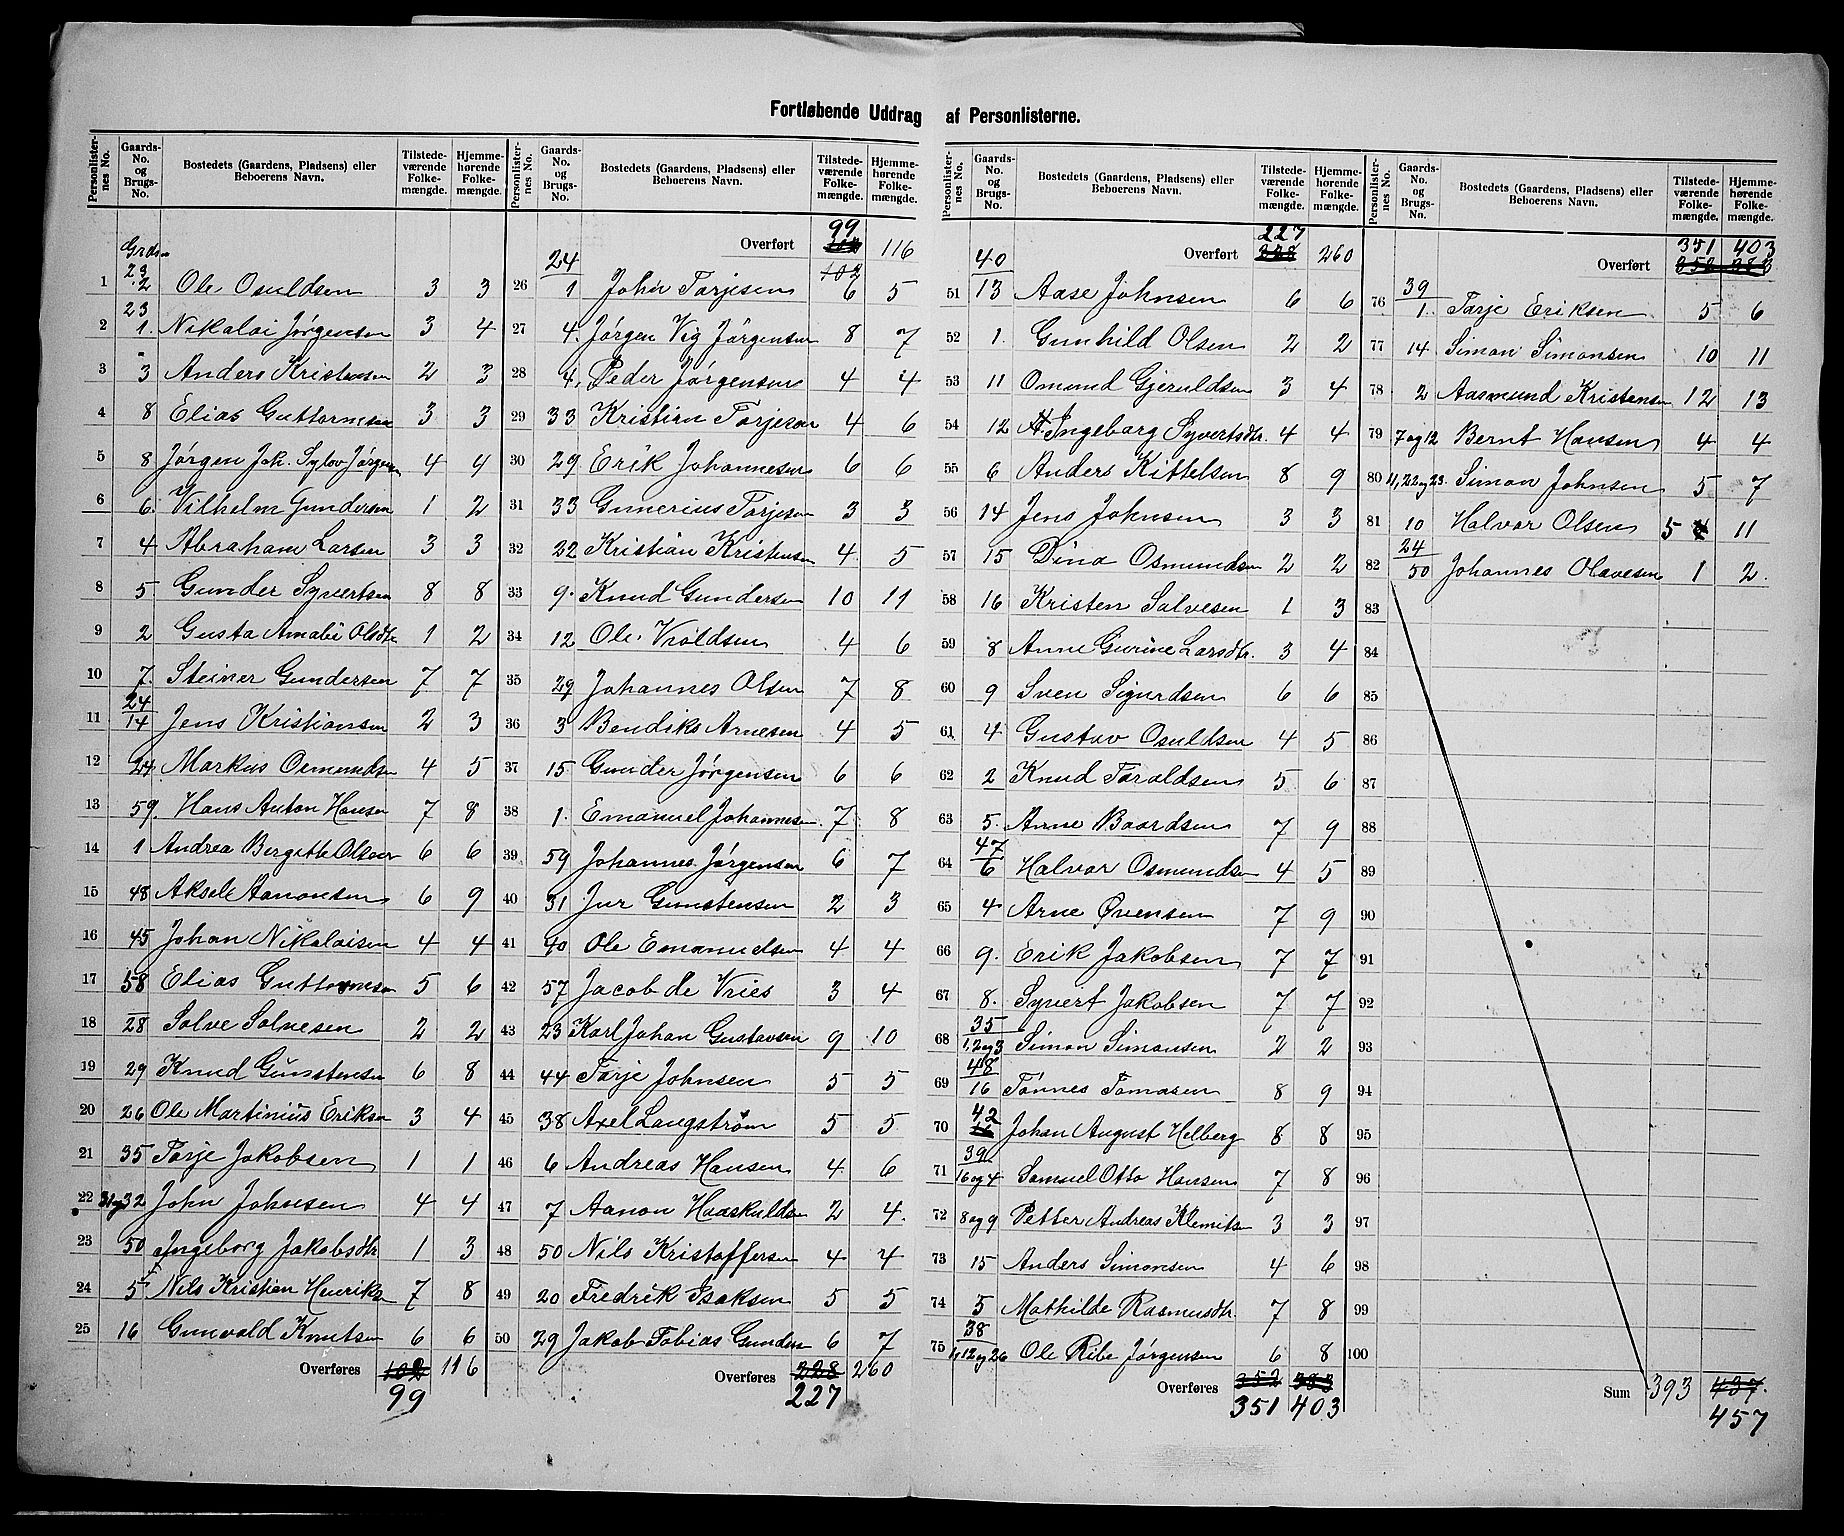 Fortløbende Uddrag af Personlisterne.
Personlister-nes No. | Gaards-No. og Brugs-No. | Bostedets (Gaardens, Pladsens) eller Beboerens Navn. | Tilstede-værende Folke-mængde. | Hjemme-hørende Folke-mængde.
Grdsn
1 23/2 Ole Osuldsen 3 3
2 23/1. Nikolai Jørgensen 3 4
3 3 Anders Kristensen 2 3
4 8 Elias Guttormsen 3 3
5 8 Jørgen Joh. Sylov Jørgensen 4 4
6 6. Vilhelm Gundersen 1 2
7 4 Abraham Larsen 3 3
8 5 Gunder Syvertsen 8 8
9 2 Gusta Amalie Olsdtr 1 2
10 7. Steiner Gundersen 7 7
11 24/14 Jens Kristiansen 2 3
12 24 Markus Osmundsen 4 5
13 59. Hans Anton Hansen 7 8
14 1 Andrea Bergitte Olsen 6 6
15 48 Aksel Aanonsen 6 9
16 45 Johan Nikolaisen 4 4
17 58 Elias Guttormsen 5 6
18 28 Solve Solvesen 2 2
19 29 Knud Gunstensen 6 8
20 26 Ole Martinius Eriksen 3 4
21 35 Tarje Jakobsen 1 1
22 31og32 John Johnsen 4 4
23 50 Ingeborg Jakobsdtr 1 3
24 5 Nils Kristian Henriksen 7 8
25 16 Gunvald Knutsen 6 6
Overføres 102 116
99
Personlister-nes No. | Gaards-No. og Brugs-No. | Bostedets (Gaardens, Pladsens) eller Beboerens Navn. | Tilstede-værende Folke-mængde. | Hjemme-hørende Folke-mængde.
99
Overført 116
102
26 24/1 John Tarjesen 6 5
27 4. Jørgen Vig Jørgensen 8 7
28 4, Peder Jørgensen 4 4
29 33 Kristian Tarjesen 4 6
30 29 Erik Johannesen 6 6
31 33 Gunerius Tarjesen 3 3
32 22 Kristian Kristensen 4 5
33 9. Knud Gundersen 10 11
34 12 Ole Vroldsen 4 6
35 29 Johannes Olsen 7 8
36 3 Bendiks Arnesen 4 5
37 15 Gunder Jørgensen 6 6
38 1. Emanuel Johannesen 7 8
39 59 Johannes Jørgensen 6 7
40 31 Jur Gunstensen 2 3
41 40 Ole Emanuelsen 4 4
42 57 Jacob de Vries 3 4
43 23 Karl Johan Gustavsen 9 10
44 44 Tarje Johnsen 5 5
45 38 Axel Langström 5 5
46 6 Andreas Hansen 4 6
47 7 Aanon Haaskuldsen 2 4.
48 50 Nils Kristoffersen 4 4
49 20 Fredrik Isaksen 5 5
50 29 Jakob Tobias Gundersen 6 7
Overføres 228 260
227
Personlister-nes No. | Gaards-No. og Brugs-No. | Bostedets (Gaardens, Pladsens) eller Beboerens Navn. | Tilstede-værende Folke-mængde. | Hjemme-hørende Folke-mængde.
227
Overført 228 260
51 40/13 Aase Johnsen 6 6
52 1. Gunhild Olsen 2 2
53 11 Omund Gjeruldsen 3 4
54 12 Ingeborg Syvertsdtr. 4 4
55 6 Anders Kittelsen 8 9
56 14 Jens Johnsen 3 3
57 15 Dina Osmundsen 2 2
58 16 Kristen Salvesen 1 3
59 8 Anne Gurine Larsdtr. 3 4
60 9 Sven Sigurdsen 6 6
61 4 Gustav Osuldsen 4 5
62 2 Knud Taraldsen 5 6
63 5. Anne Baardsen 7 9
64 47/6 Halvor Osmundsen 4 5
65 4 Arne Øvensen 7 9
66 9. Erik Jakobsen 7 7
67 8. Syvert Jakobsen 7 7
68 35/1,2og3 Simon Simonsen 2 2
69 48/16 Tønnes Tomasen 8 9
70 42 Johan August Helberg 8 8
71 39/16og4 Samuel Otto Hansen 7 8
72 8og9 Petter Andreas Klemitsen 3 3
73 15 Anders Simonsen 4 6
74 5 Mathilde Rasmusdtr. 7 8
75 38/11,12og26 Ole Ribe Jørgensen 6 8
Overføres 352 383
351 403
Personlister-nes No. | Gaards-No. og Brugs-No. | Bostedets (Gaardens, Pladsens) eller Beboerens Navn. | Tilstede-værende Folke-mængde. | Hjemme-hørende Folke-mængde.
351 403
Overført 352 383
76 39/1. Tarje Eriksen 5 6
77 14 Simon Simonsen 10 11
78 2 Aasmund Kristensen 12 13
79 7og12 Bernt Hansen 4 4
80 11,22og23. Simon Johnsen 5 7
81 10 Halvor Olsen 5 4 11
82 24/50 Johannes Olavesen 1 2.
83
84
85
86
87
88
89
90
91
92
93
94
95
96
97
98
99
100
Sum 393 437.
457